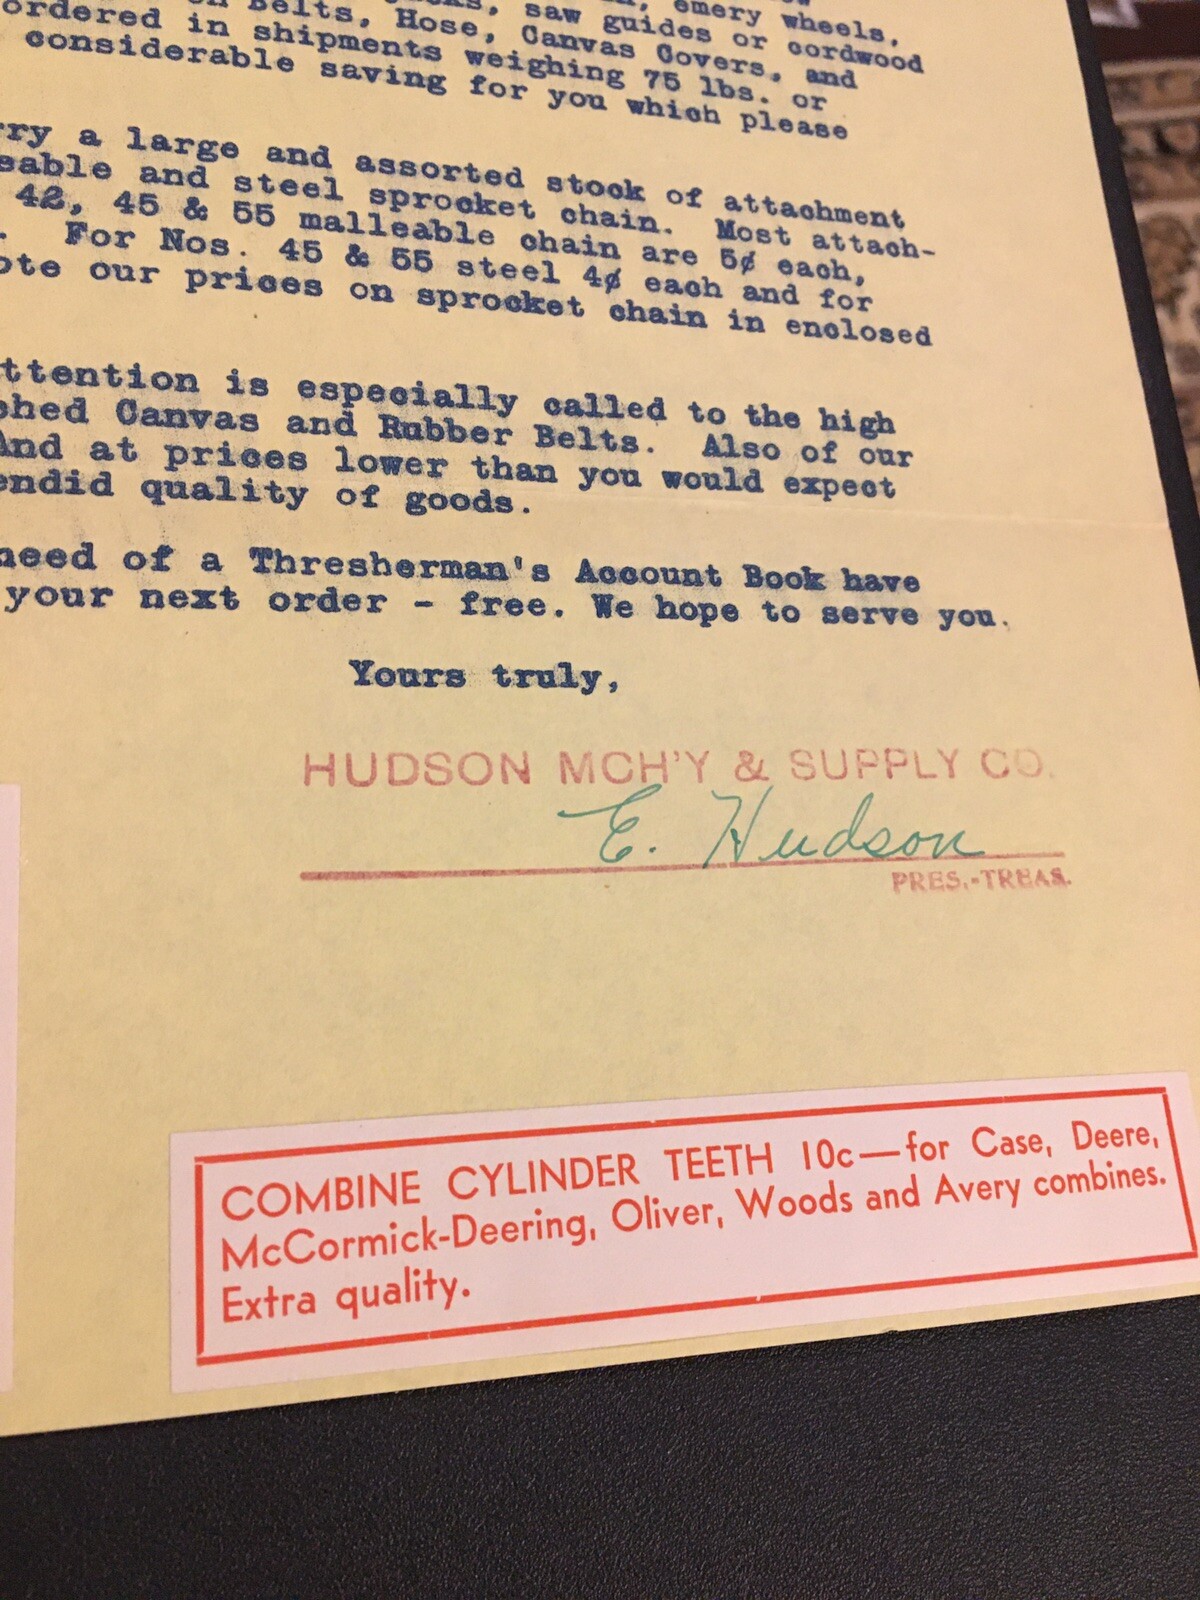 emery wheels,
Belts, Hose, saw guides or cordwood
ordered in Canvas Covers, and
considerable shipments weighing 75 lbs. or
saving for you which please
rry a large and assorted stock of attachment
eable and steel sprocket chain. Most attach-
42, 45 & 55 malleable chain are 5¢ each,
. For Nos. 45 & 55 steel 4¢ each and for
ote our prices on sprocket chain in enclosed
ttention is especially called to the high
shed Canvas and Rubber Belts. Also of our
And at prices lower than you would expect
endid quality of goods.
need of a Thresherman's Account Book have
your next order - free. We hope to serve you.
Yours truly,
HUDSON MCH'Y & SUPPLY CO.
E. Hudson
PRES.-TREAS.
COMBINE CYLINDER TEETH 10c—for Case, Deere,
McCormick-Deering, Oliver, Woods and Avery combines.
Extra quality.